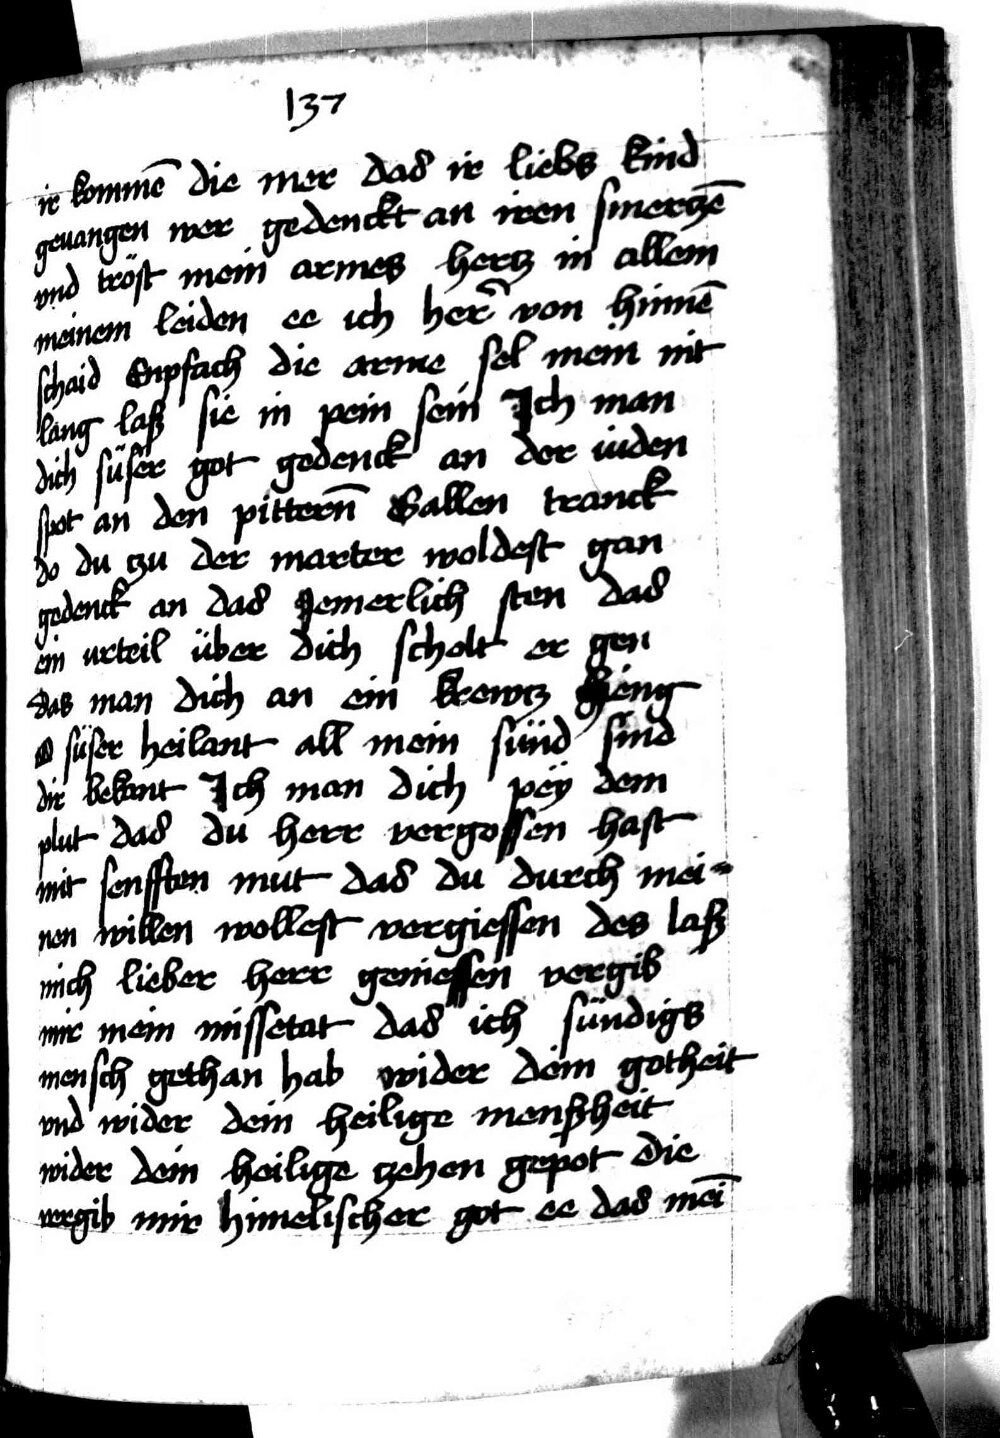 137
ir kommē die mer das ir liebs kind
geuangen wer gedenckt an iren smertzē
vnd tröst mein armes hertz in allem
meinem leiden ee ich her͂ von hinnē
schaid Enpfach die arme sel mein nit
lang laß sie in pein sein Ich man
dich süser got gedenck an der iuden
spot an den pittern̄ Gallen tranck
do du tzu der marter woldest gan
gedenck an das Jemerlich sten das
ein urteil über dich scholt er gen
das man dich an ein krewtz hieng
O süser heilant all mein sünd sind
dir bekant Ich man dich pëy dem
plut das du herr vergossen hast
mit senfften mut das du durch mei-
nen willen wollest vergiessen des laß
mich lieber herr geniessen vergib
mir mein missetat das ich sündigs
mensch gethan hab wider dein gotheit
vnd wider dein heilige menßheit
wider dein heilige tzehen gepot die
vergib mir himelischer got ee das mei̅